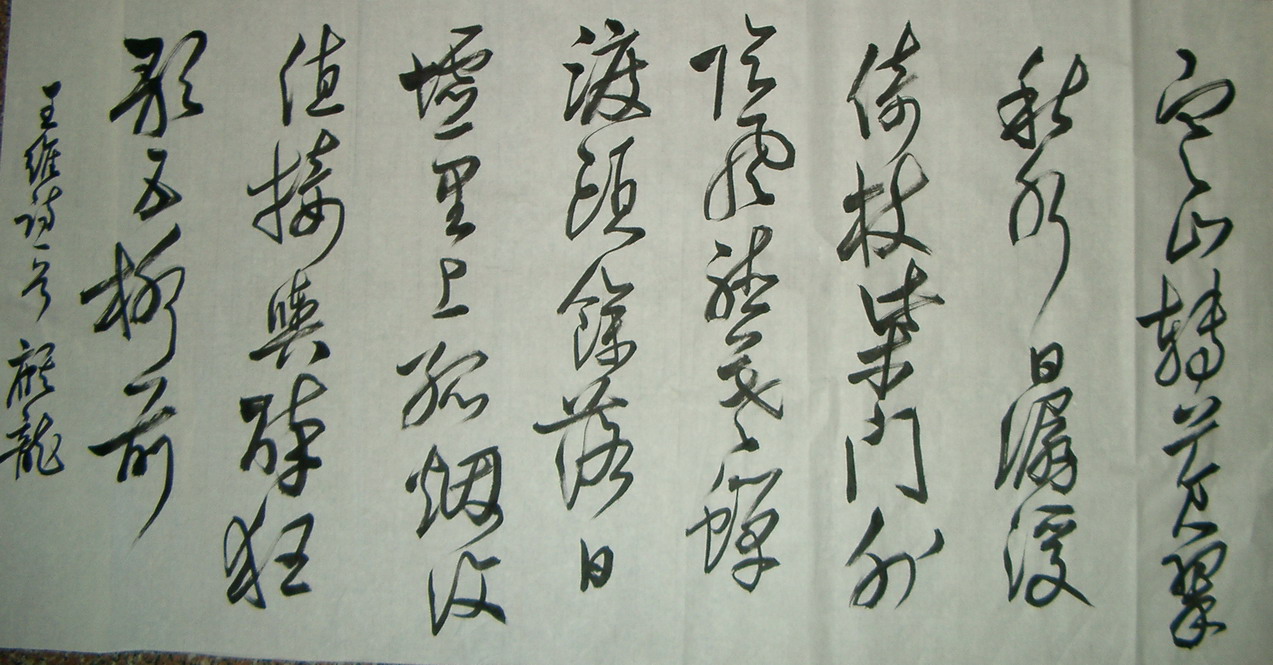 寒山轉蒼翠
秋水日潺湲
倚杖柴門外
臨風聽暮蟬
渡頭餘落日
墟里上孤烟復
值接輿醉狂
歌五柳前
王維詩一首 龍